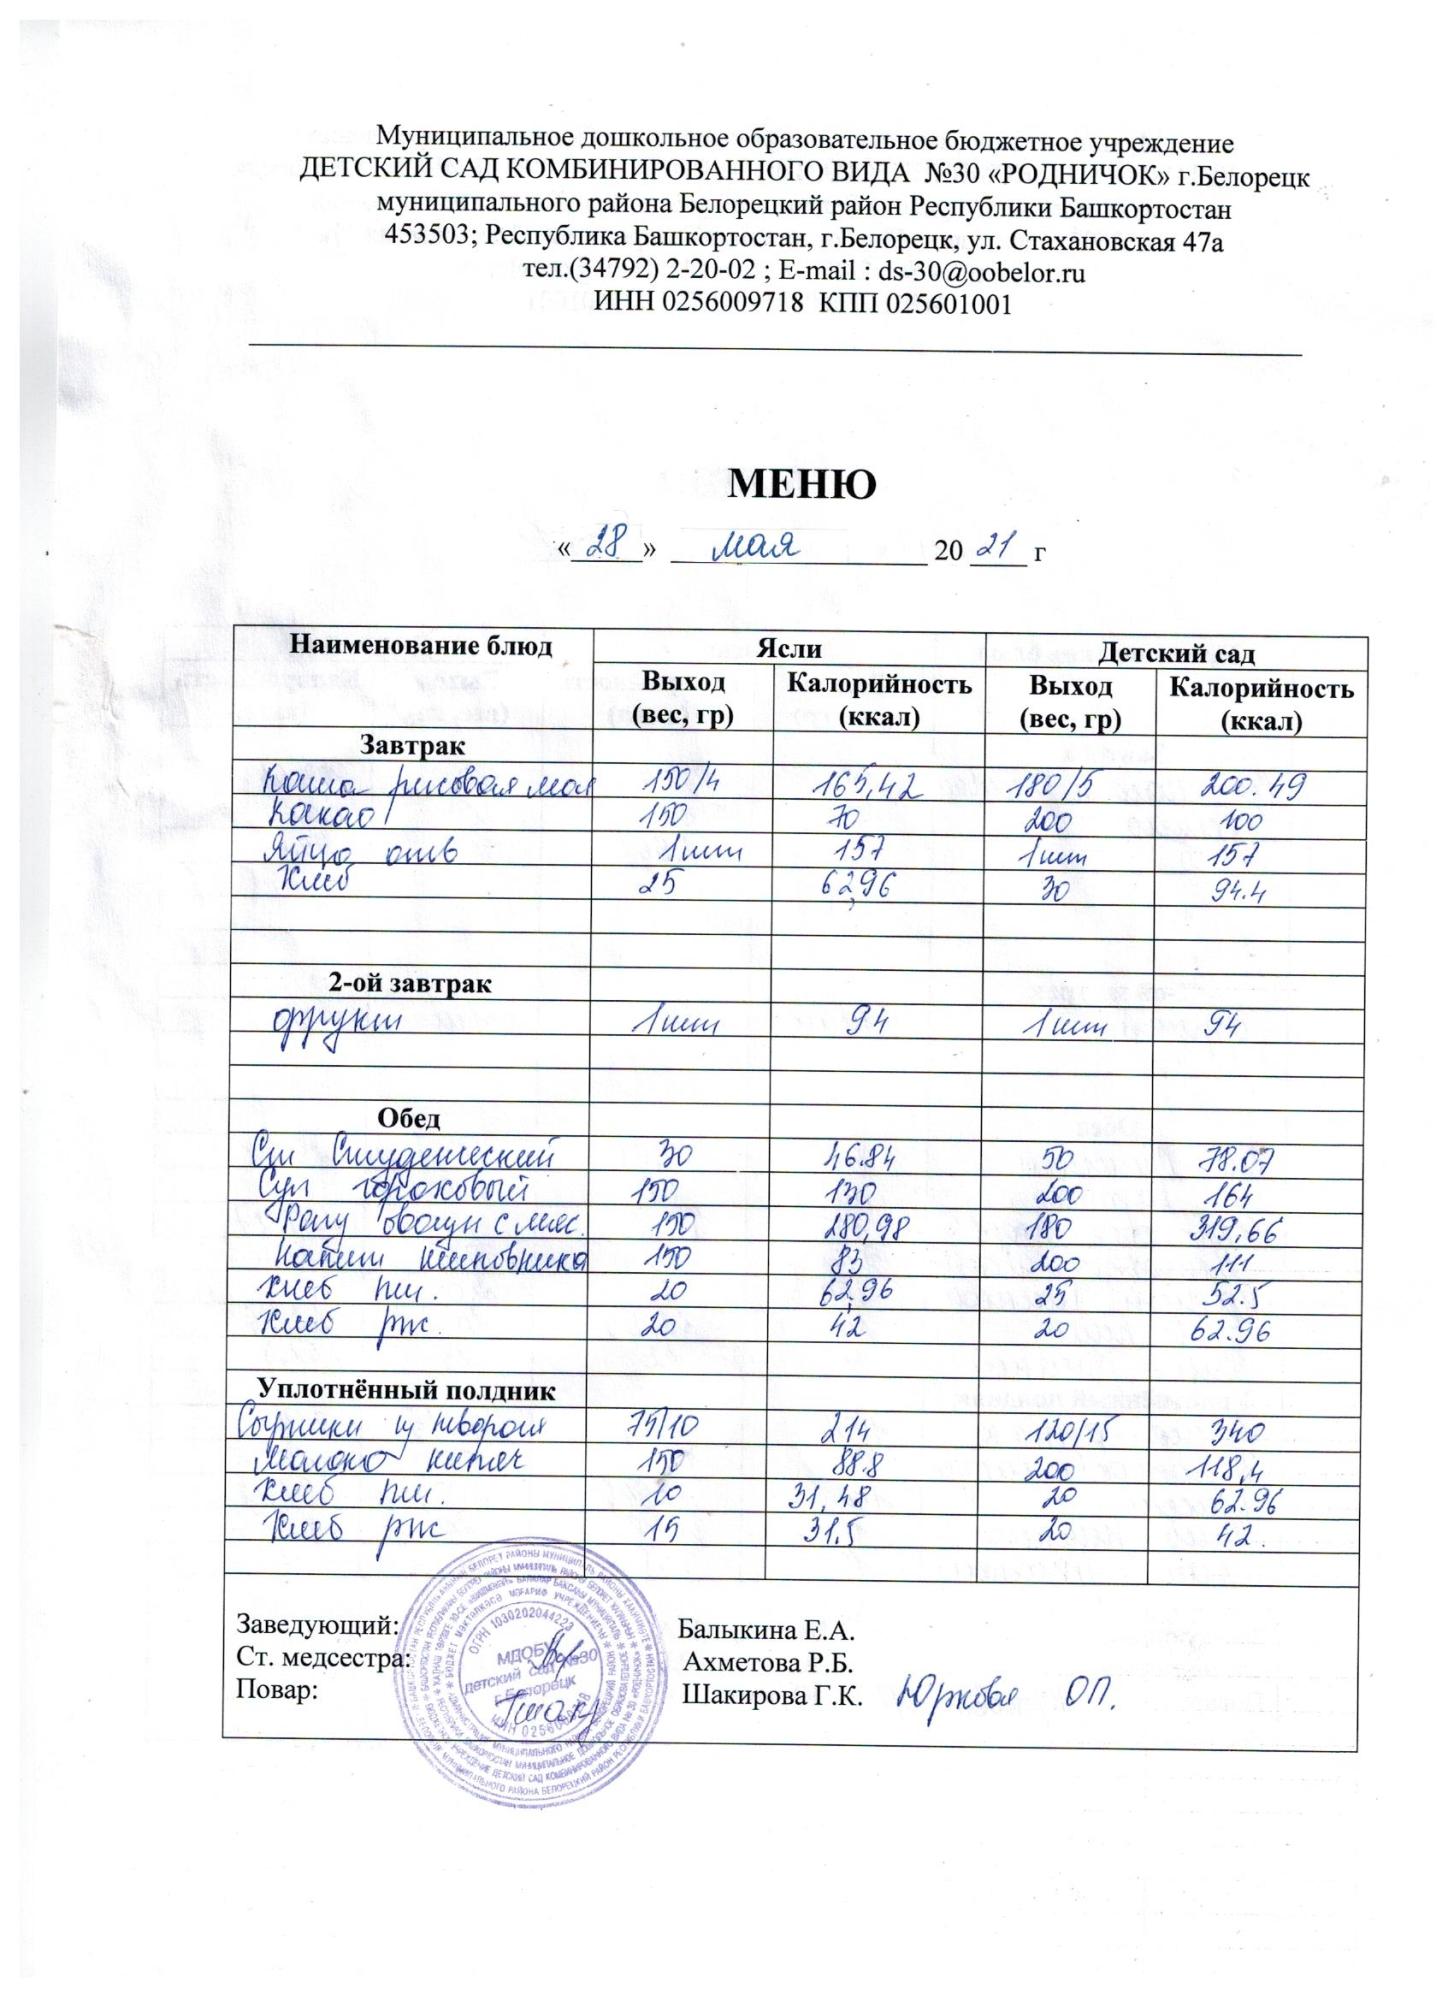 Муниципальное дошкольное образовательное бюджетное учреждение
ДЕТСКИЙ САД КОМБИНИРОВАННОГО ВИДА №30 «РОДНИЧОК» г.Белорецк
муниципального района Белорецкий район Республики Башкортостан
453503; Республика Башкортостан, г.Белорецк, ул. Стахановская 47а
тел.(34792) 2-20-02 ; E-mail : ds-30@oobelor.ru
ИНН 0256009718 КПП 025601001
МЕНЮ
«28» мая 20 21 г
Наименование блюд Ясли Детский сад
Выход (вес, гр) Калорийность (ккал) Выход (вес, гр) Калорийность (ккал)
Завтрак
Каша рисовая мол 150/4 165,42 180/5 200.49
Какао 150 70 200 100
Яйцо отв 1шт 157 1шт 157
Хлеб 25 62,96 30 94.4
2-ой завтрак
фрукт 1шт 94 1шт 94
Обед
Сал Студенческий 30 46.84 50 78.07
Суп гороховый 150 130 200 164
Рагу овощн с мяс. 150 280,98 180 319,66
Напит шиповника 150 83 200 111
Хлеб пш. 20 62.96 25 52.5
Хлеб рж. 20 42 20 62.96
Уплотнённый полдник
Сырники из творога 75/10 214 120/15 340
Молоко кипяч 150 88.8 200 118,4
Хлеб пш. 10 31,48 20 62.96
Хлеб рж 15 31,5 20 42.
Заведующий: Балыкина Е.А.
Ст. медсестра: Ахметова Р.Б.
Повар: Шакирова Г.К. Юркова О.П.
ОГРН 1030202044223
МДОБУ
детский сад №30
г.Белорецк